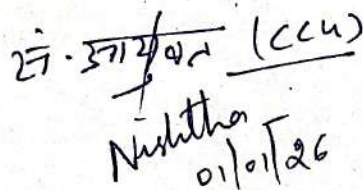 सं. आयुक्त (CCU)
Nishtha
01/01/26